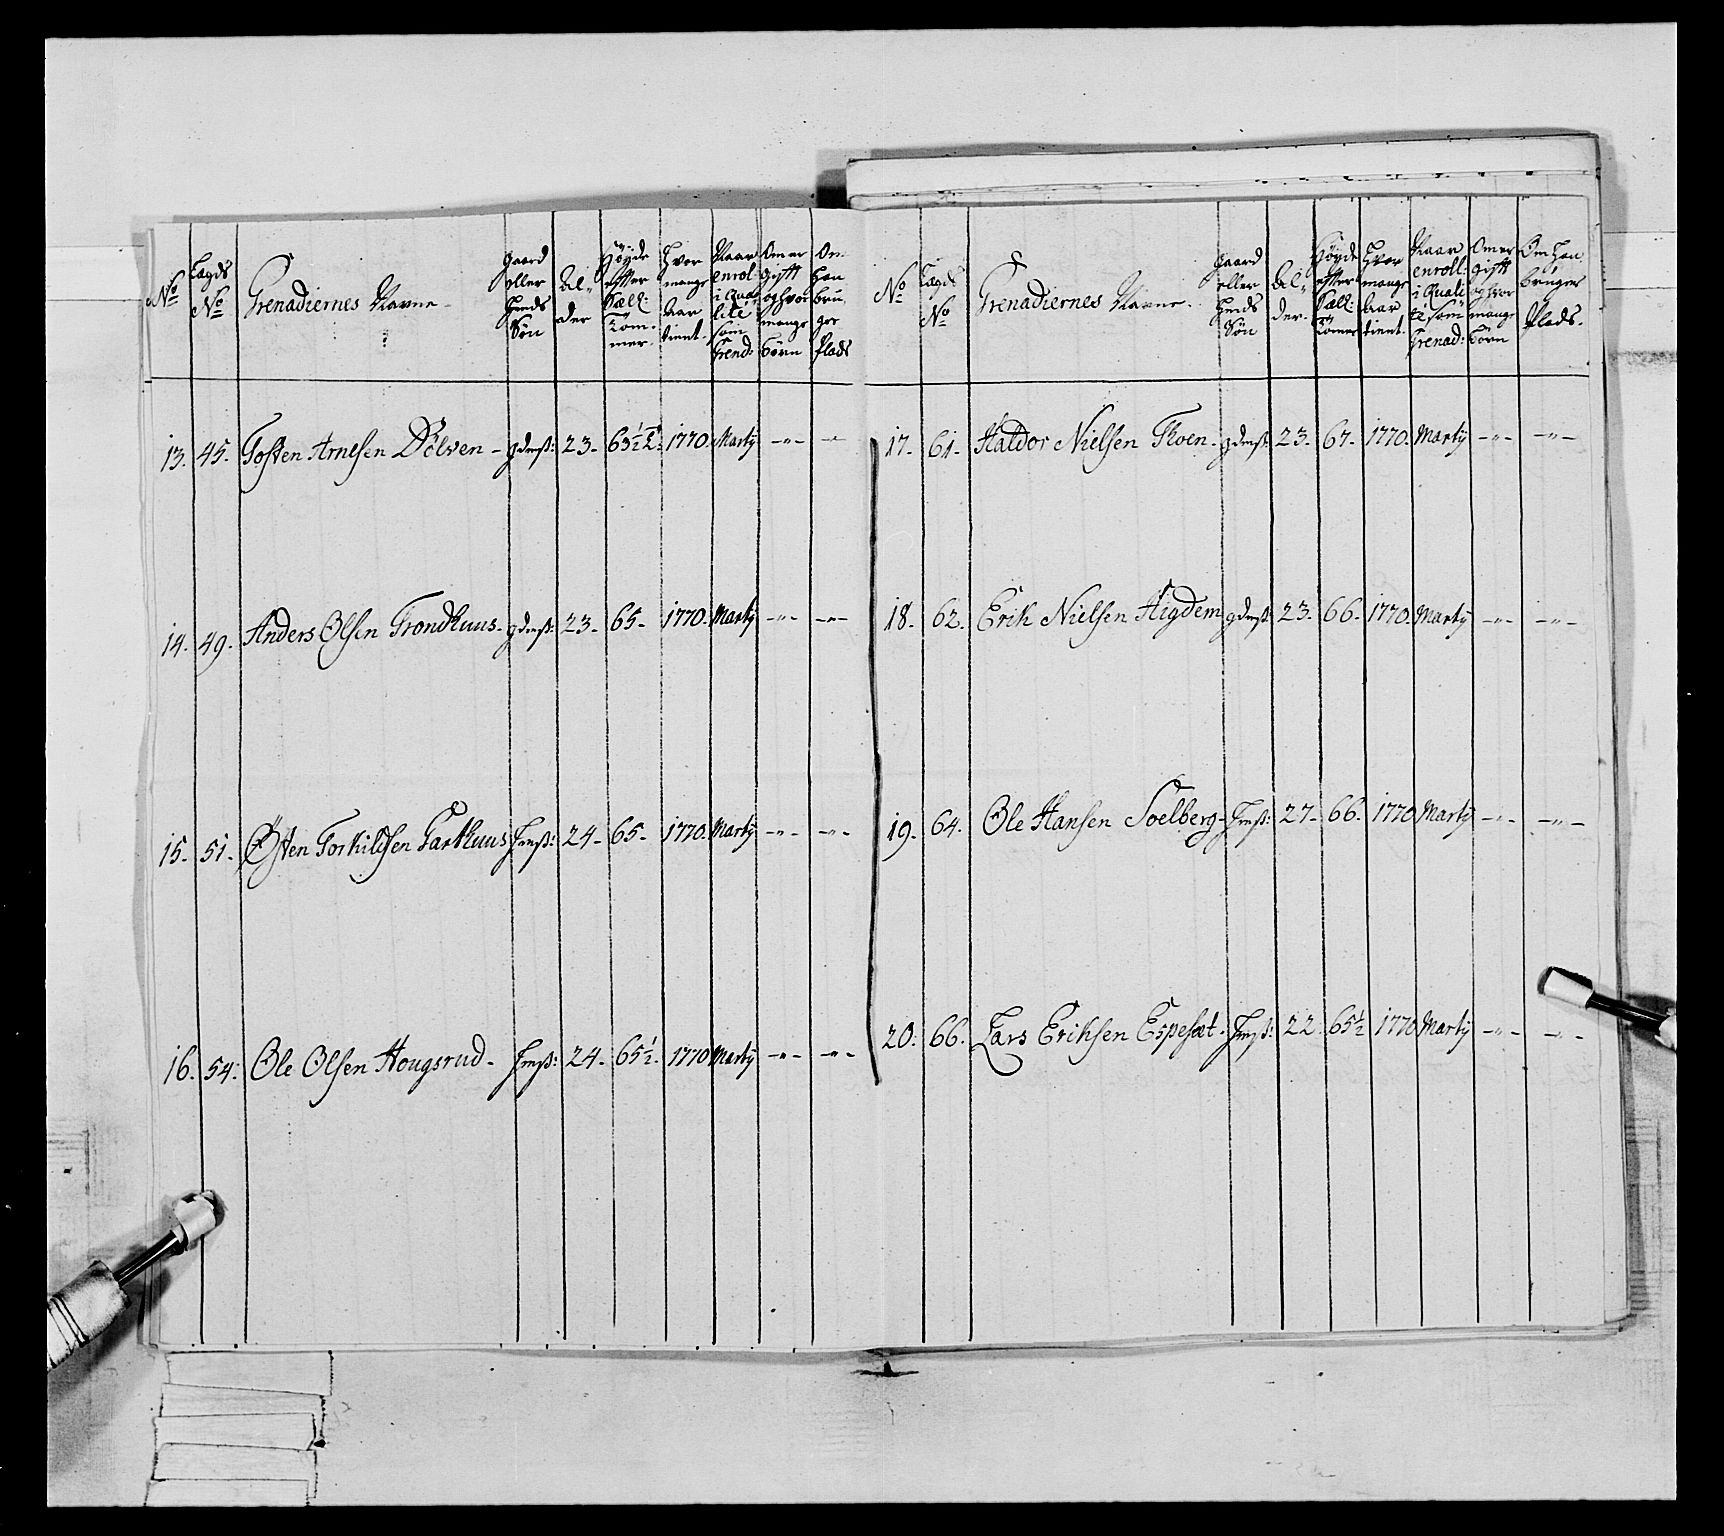 No
Lægds No
Grenadiernes Navne
gaard eller Huus Søn
Al- der
Høyde efter Sæll: Tom- mer.
Hvor mange Aar tient.
Naar enrol- i Qua- lite som Grend:
Om er gift og hvor mange Børn
Om han bru- ger Plads
13. 45. Tosten Arnesen Dölven - gdmß: 23. 63½ 1770. Marty -"- -"-
14. 49. Anders Olsen Trondhuus. gdmß: 23. 65. 1770. Marty -"- -"-
15. 51. Østen Torkildsen Garthuus Hmß: 24. 65. 1770. Marty -"- -"-
16. 54. Ole Olsen Hougsrud - Hmß: 24. 65½. 1770 Marty -"- -"-
No
Lægds No
Grenadiernes Navne.
gaard eller Huus Søn
Al- der.
Høyde efter Sæll: Tomer
Hvor mange Aar tient.
Naar enroll: i Quali- te som Grenad:
Om er gift og hvor mange Børn
Om han bruger Plads.
17. 61. Haldor Nielsen Floen. gdmß: 23. 67. 1770. Marty -"- -"-
18. 62. Erik Nielsen Aigdem gdmß: 23. 66. 1770. Marty -"- -"-
19. 64. Ole Hansen Soelberg. Hmß: 27. 66. 1770 Marty -"- -"-
20. 66. Lars Eriksen Espeset. Hmß: 22. 65½ 1770 Marty -"- -"-